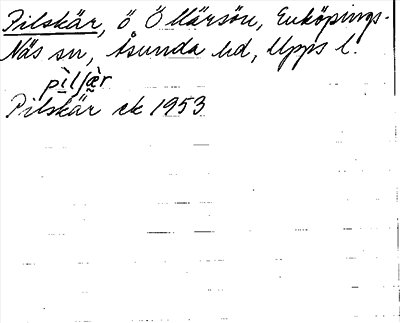 Pilskär, ö Ö Märsön, Enköpings-
Näs sn, Åsunda hd, Upps l.
pìlʃæ̀r
Pilskär ek 1953